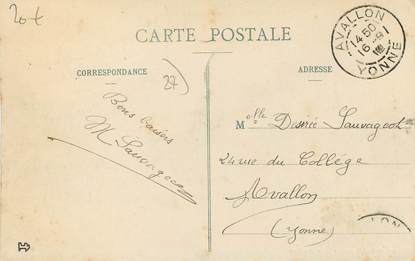 20 €
CARTE POSTALE
AVALLON
14-50
16-8
YONNE
CORRESPONDANCE
ADRESSE
27
Bons baisers
M Sauvageot
Melle Desirée Sauvageot
24 rue du Collége
Avallon
(Yonne)
LON